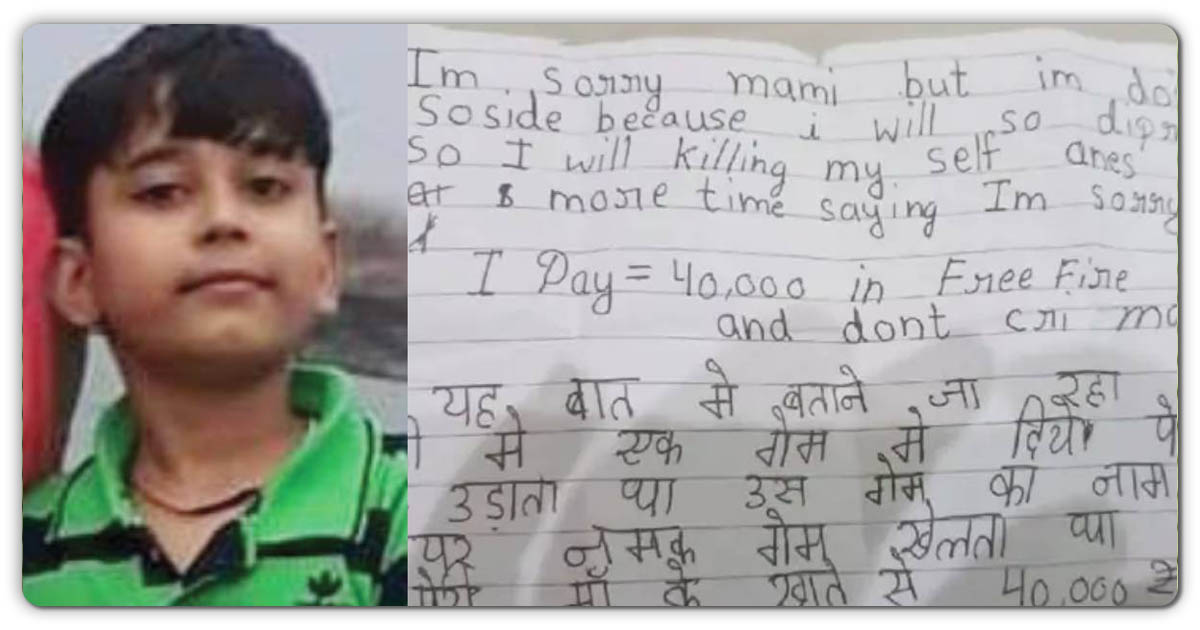 Im sorry mami but im
Soside because i will so
So I will killing my self anes
more time saying Im sorry
I Day = 40,000 in Free Fire
and dont cri
यह बात मे बताने जा रहा
मे एक गेम मे दिये
उड़ाता था उस गेम का नाम
नमक गेम खेलता था
माँ के खाते से 40,000